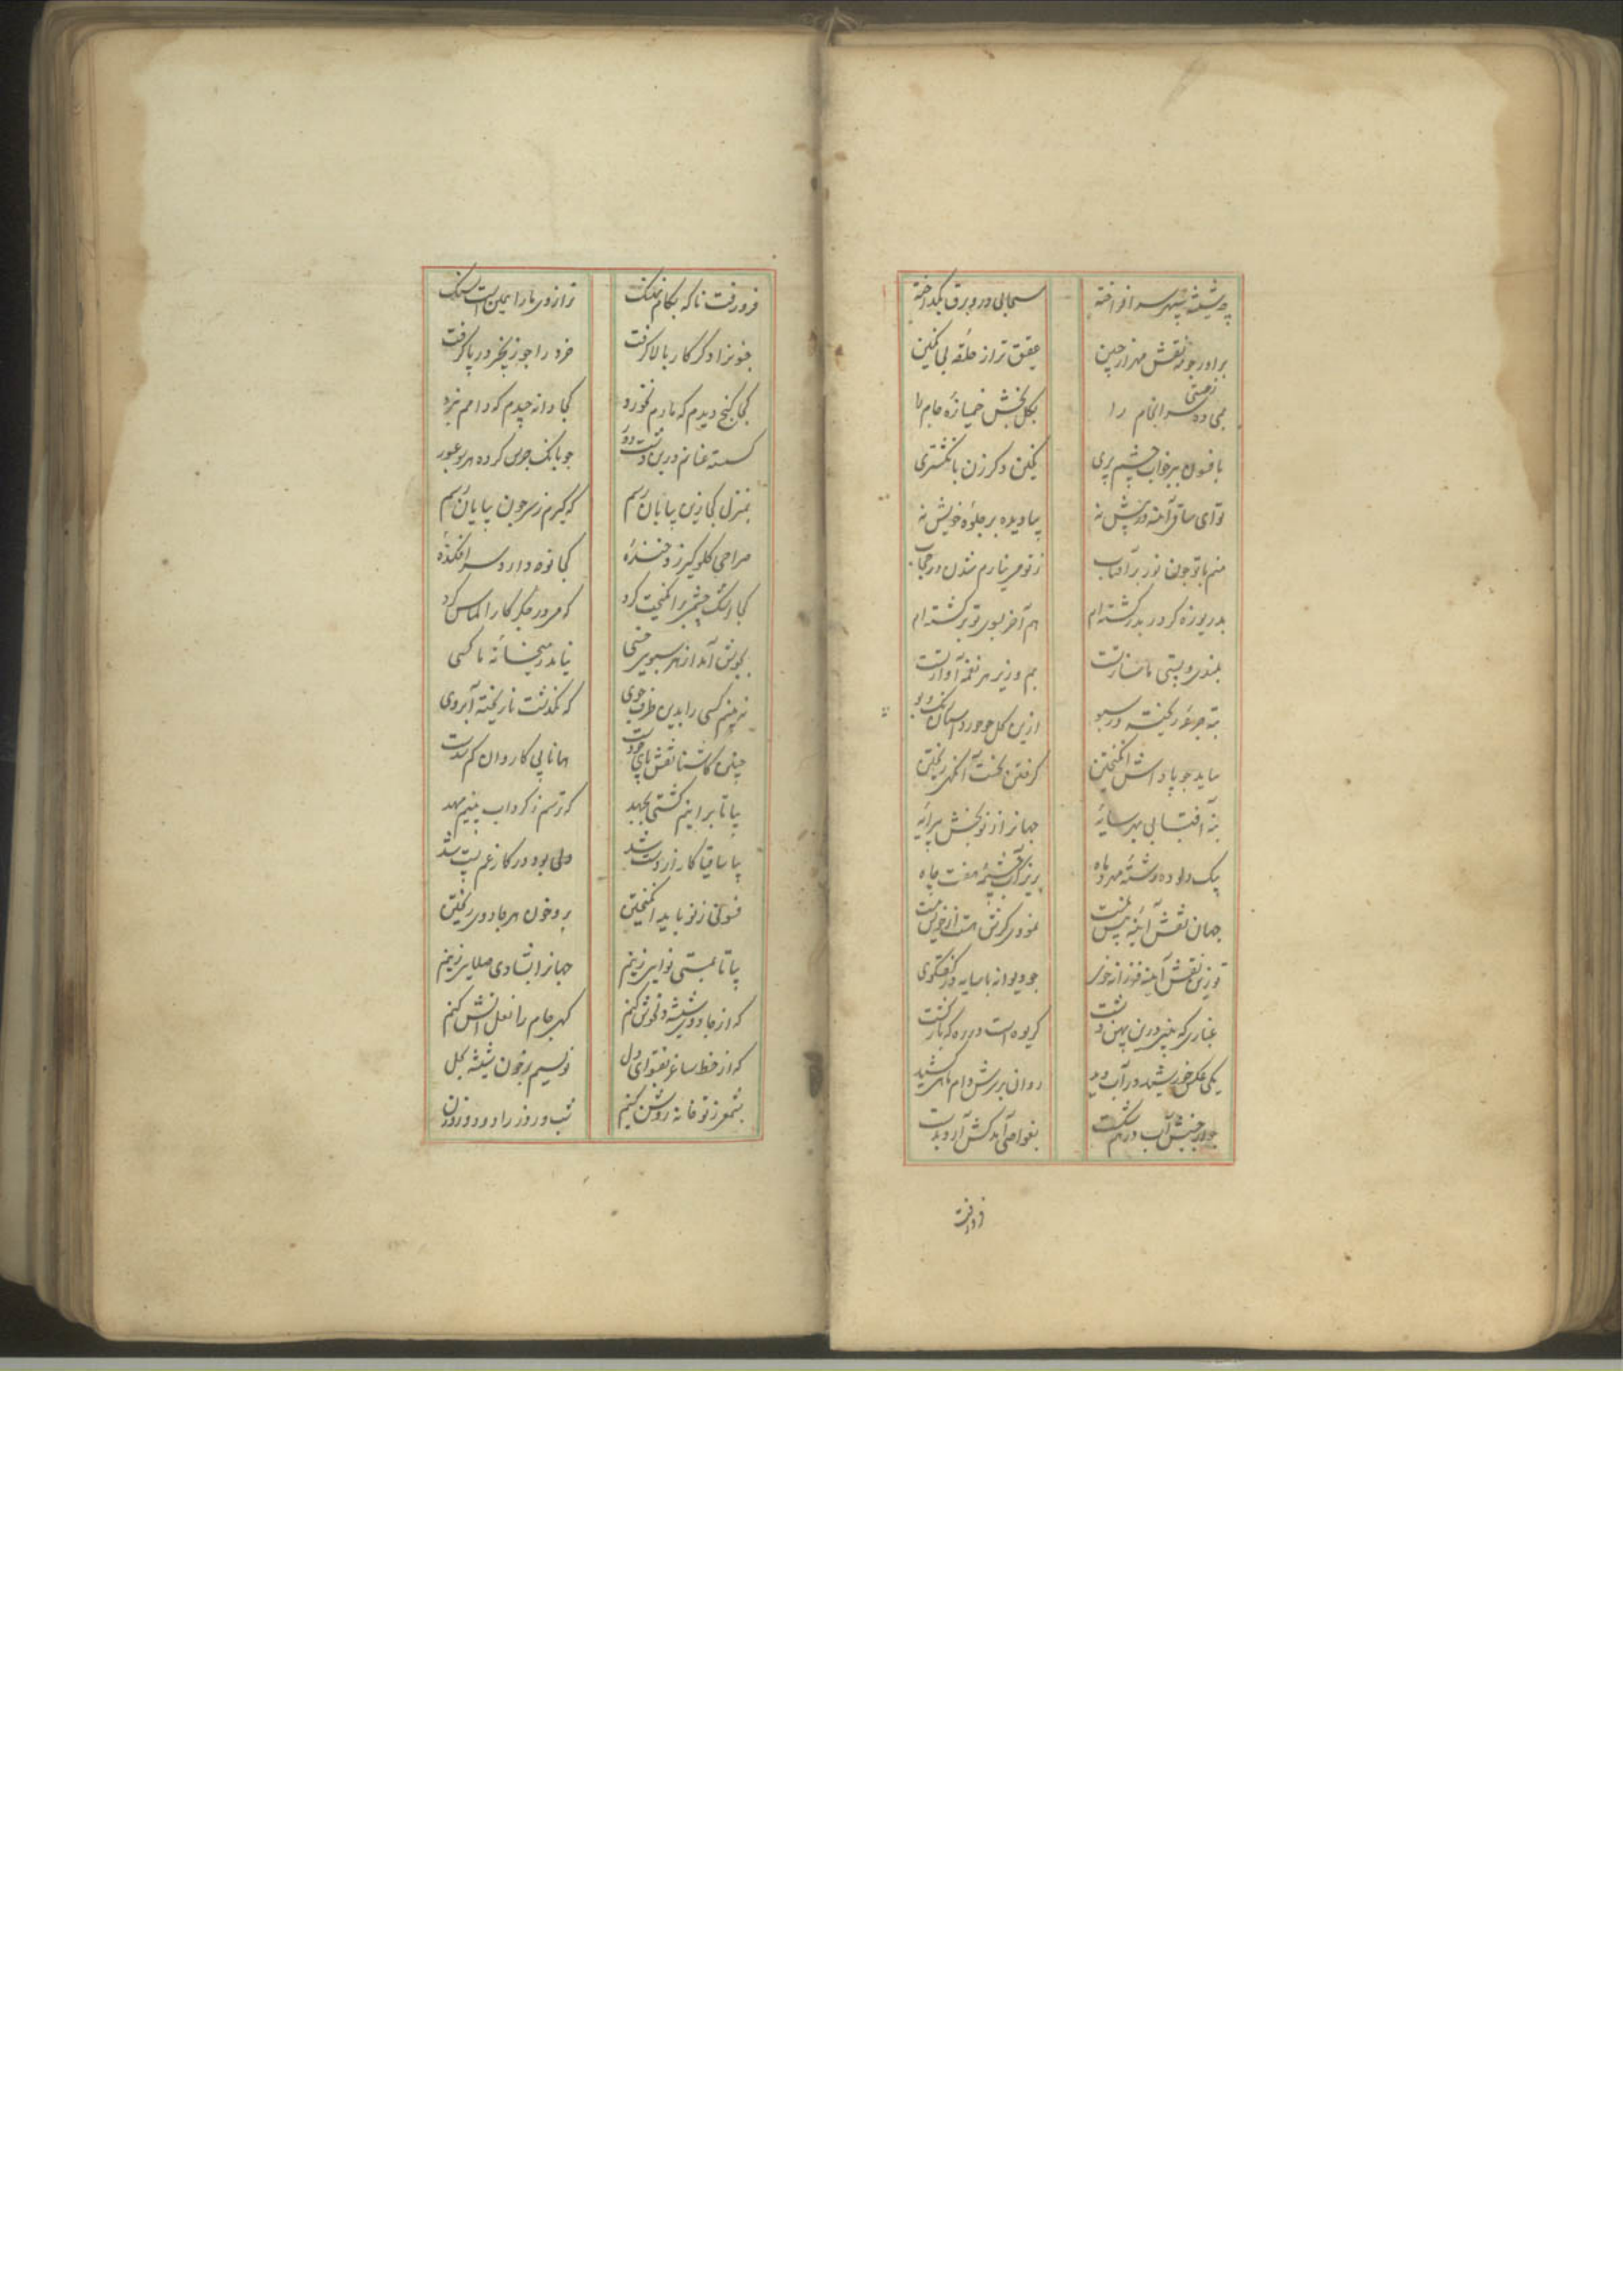 چه شیشه سپهر سر افراخته سحابی درو برق بگداخته
برآور جو نقش مهر از جبین عقیق تر از حلقه بی نکین
زمستی
می ده سرانجام را بکل بخش خمیازه جام را
بافسون ببر خواب چشم پری نکین دکر زن بانکشتری
تو ای ساقی آینه در پیش نه بیا دیده بر جلوه خویش نه
منم با تو جون نور بر آفتاب ز تو می نیارم شدن در حجاب
بدریوزه کرد در بدر کشته‌ام هم آخر بسوی تو بر کشته‌ام
بلندی و پستی ما سازتست بم و زیر هر نغمه آوازتست
ته جرعه ریخته در سبو ازین کل جو خورد آسمان رنک و بو
بیاید جو پاداش انکیختن کرفتن نخست آنکهی ریختن
نه آفتابی بهر سایه جهانرا ز نو بخش پیرایه
یک دلو ده رشته مهر و ماه بریز آب جشمه هفت چاه
جهان نقش آیینه پیش نیست نمودی کرش هست از خویش نیست
تو زین نقش آینه فرزانه خوی جو دیوانه با سایه در کفتکوی
غباری که بینی درین پهن دشت کریوه است در ره که باز کشت
یکی عکس خورشید در آب دید روان بر سرش دام ماهی کشید
جو از جنبش آب درهم شکست بغواصی آمد کش آرد بدست
فرو رفت
فرو رفت ناکه بکام نهنک ترازوی ما را همین است سنک
جنونرا دکر کار بالا کرفت خرد را جو زنجیر در پا کرفت
کجا کنج دیدم که مارم نخورد کجا دانه چیدم که دامم نبرد
کسسته عنانم درین دشت دور جو بانک جرس کرده هر سو عبور
بمنزل کجا زین بیابان رسم که کیرم ز سر چون بپایان رسم
صراحی کلوکیر زد خنده کجا توبه دارد سر افکنده
کجا اشک چشم بر انکیخت کرد که مروز جکر کار الماس کرد
بکوش آمد از هر سبویی خسی نیامد ز میخانه ما کسی
نبینم کسی را بدین طرف جوی که نکذشت نا ریخته آبروی
چنین کاشنا نقش پای خودست همانا پی کاروان کم شدست
بیا تا برانیم کشتی بجهد که ترسم ز کرداب بینیم مهد
بیا ساقیا کار از دست شد دلی بود در کار غم پست شد
فسونی ز نو باید انکیختن برو خون هر جادوی ریختن
بیا تا بمستی نوایی زنیم جهانرا بشادی صلایی زنیم
که از جادوی شیشه دل خوش کنیم کهی جام را نعل آتش کنیم
که از خط ساغر بفتوای دل نویسیم بر خون شیشه بحل
بشمعی ز تو خانه روشن کنیم شب و روز را در دو روزن